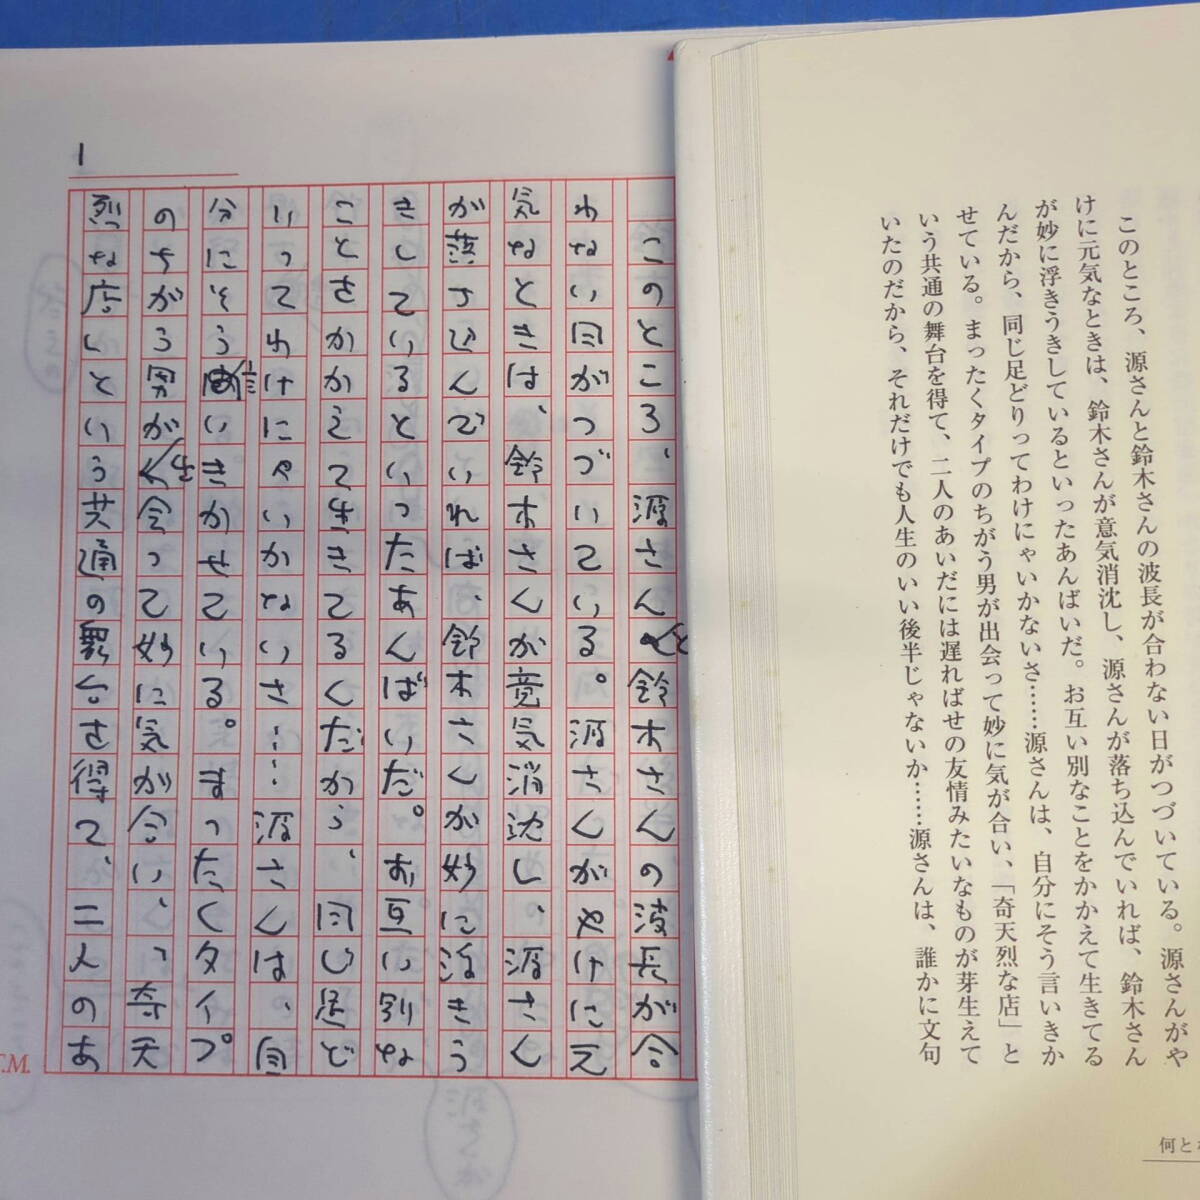 このところ、源さんと鈴木さんの波長が合わない日がつづいている。源さんがや
けに元気なときは、鈴木さんが意気消沈し、源さんが落ち込んでいれば、鈴木さん
が妙に浮きうきしているといったあんばいだ。お互い別なことをかかえて生きてる
んだから、同じ足どりってわけにゃいかないさ……源さんは、自分にそう言いきか
せている。まったくタイプのちがう男が出会って妙に気が合い、「奇天烈な店」と
いう共通の舞台を得て、二人のあいだには遅ればせの友情みたいなものが芽生えて
いたのだから、それだけでも人生のいい後半じゃないか……源さんは、誰かに文句
何と
1
このところ、源さんと鈴木さんの波長が合
わない日がつづいている。源さんがやけに元
気なときは、鈴木さんが意気消沈し、源さん
が落ちこんでいれば、鈴木さんが妙に浮きう
きしているといったあんばいだ。お互い別な
ことをかかえて生きてるんだから、同じ足ど
りってわけにゃいかないさ……源さんは、自
分にそう言いきかせている。まったくタイプ
のちがう男が出会って妙に気が合い、「奇天
烈な店」という共通の舞台を得て、二人のあ
.M.